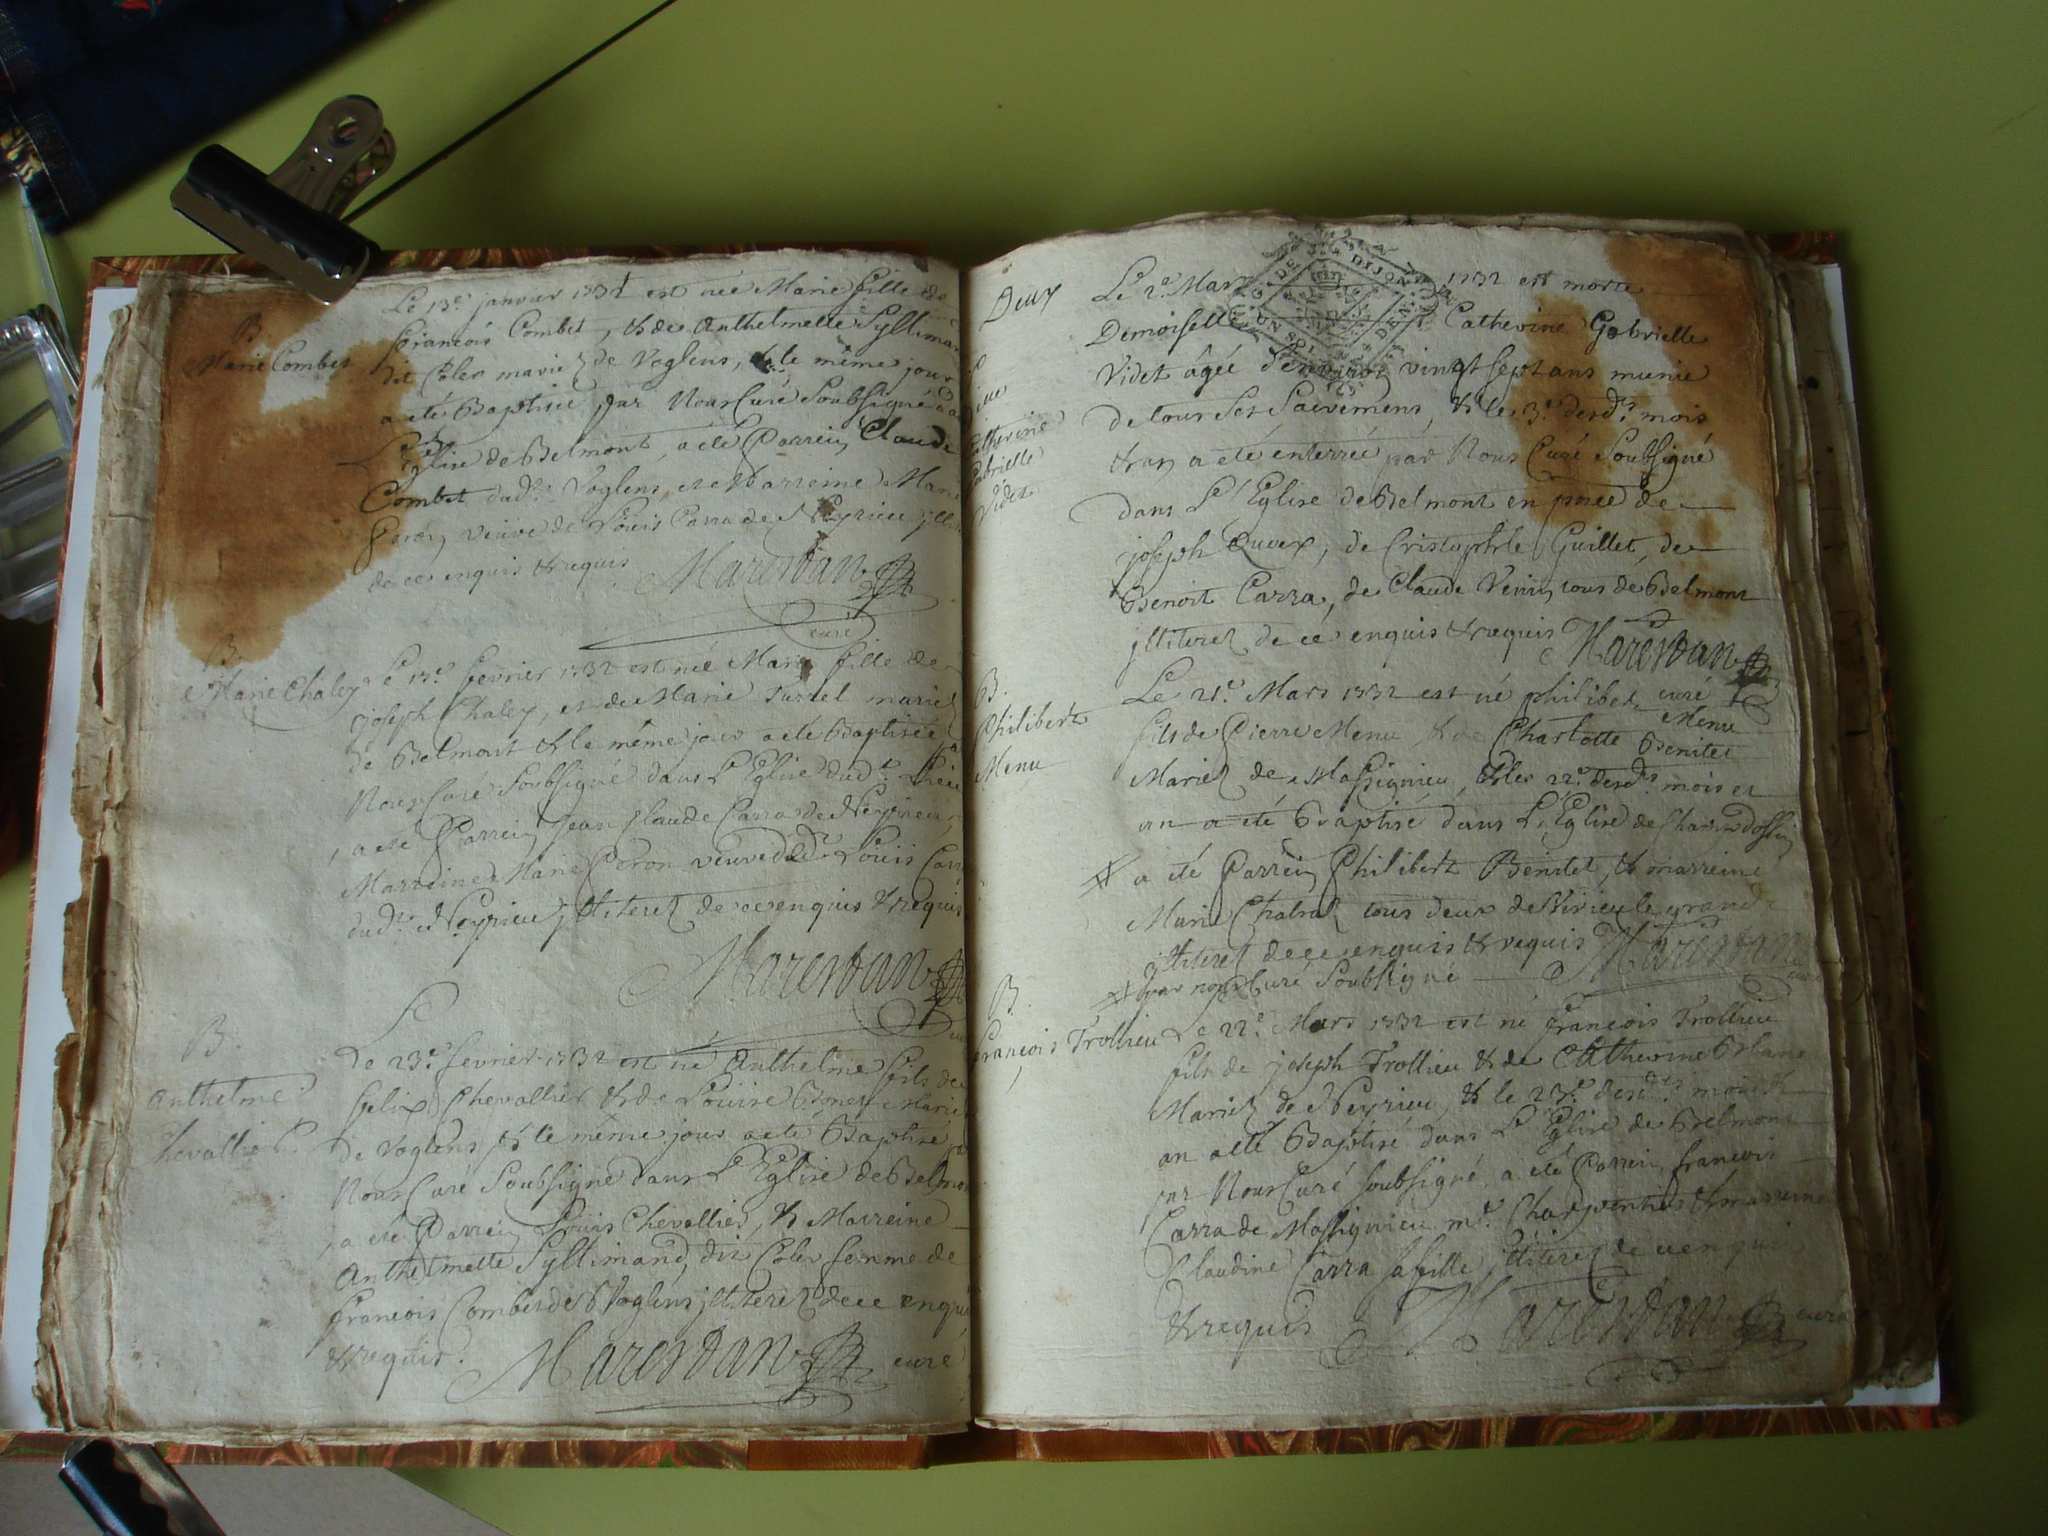 B.
Marie Combet
Le 13.e janvier 1732 est née Marie fille de
françois Combet, & de Anthelmette Syllimand
dit Coler mariez de Voglens, & le même jour
a eté Baptisée par Nous Curé Soubsigné da
L'Eglise de Belmont, a eté Parrein Claude
Combet dud.t Voglens, et Marreine Marie
Peron veuve de Louis Carra de Neyrieu jlli
de ce enquis & requis Marestan
curé
B.
Marie Chaley
Le février 1732 est née Marie fille de
joseph Chaley, et de Marie mariez
de Belmont & le même jour a eté Baptisée
Nous Curé Soubsigné dans L'Eglise dud.t Lieu
a eté Parrein jean Claude Carra de Neyrieu
Marreine Marie Peron veuve de Louis Carr
dud.t Neyrieu jlliterez de ce enquis & requis
Marestan
B.
Anthelme
Chevallier
Le 23.e fevrier 1732 est né Anthelme fils de
felix Chevallier & de Louise mariez
de Voglens & le même jour a eté Baptisé
Nous Curé Soubsigné dans L'Eglise de Belmon
a eté Parrein Louis Chevallier, & Marreine
Anthelmette Syllimand, dit Coler femme de
françois Combet de Voglens jlliterez de ce enquis
& requis. Marestan curé
Deux
Catherine
Gabrielle
Videt
Le 2.e Mars 1732 est morte
Demoiselle Catherine Gabrielle
Videt âgée d'environ vingt sept ans munie
de tous ses Sacremens, & le 3.e desd.ts mois
& an a eté enterrée par Nous Curé Soubsigné
dans L'Eglise de Belmont en pnce de
joseph de Cristophle Guillet, de
Benoit Carra, de Claude tous de Belmont
jlliterez de ce enquis & requis Marestan
curé
B.
Philibert
Menu
Le 21.e Mars 1732 est né philibert Menu
fils de Pierre Menu & de Charlotte Benitet
Mariez de Massignieu, & le 22.e desd.ts mois et
an a eté Baptisé dans L'Eglise de Champdossin
a eté Parrein Philibert Benitet, & marreine
Marie tous deux de Virieu le grand
jlliterez de ce enquis & requis Marestan
par nous Curé Soubsigné
B.
françois Trollieu
Le 22.e Mars 1732 est né françois Trollieu
fils de joseph Trollieu & de Catherine
Mariez de Neyrieu, & le 23.e desd.ts mois &
an a eté Baptisé dans L'Eglise de Belmont
par Nous Curé soubsigné, a eté Parrein françois
Carra de Massignieu m.e Charpentier & marreine
Claudine Carra sa fille jlliterez de ce enquis
& requis Marestan curé